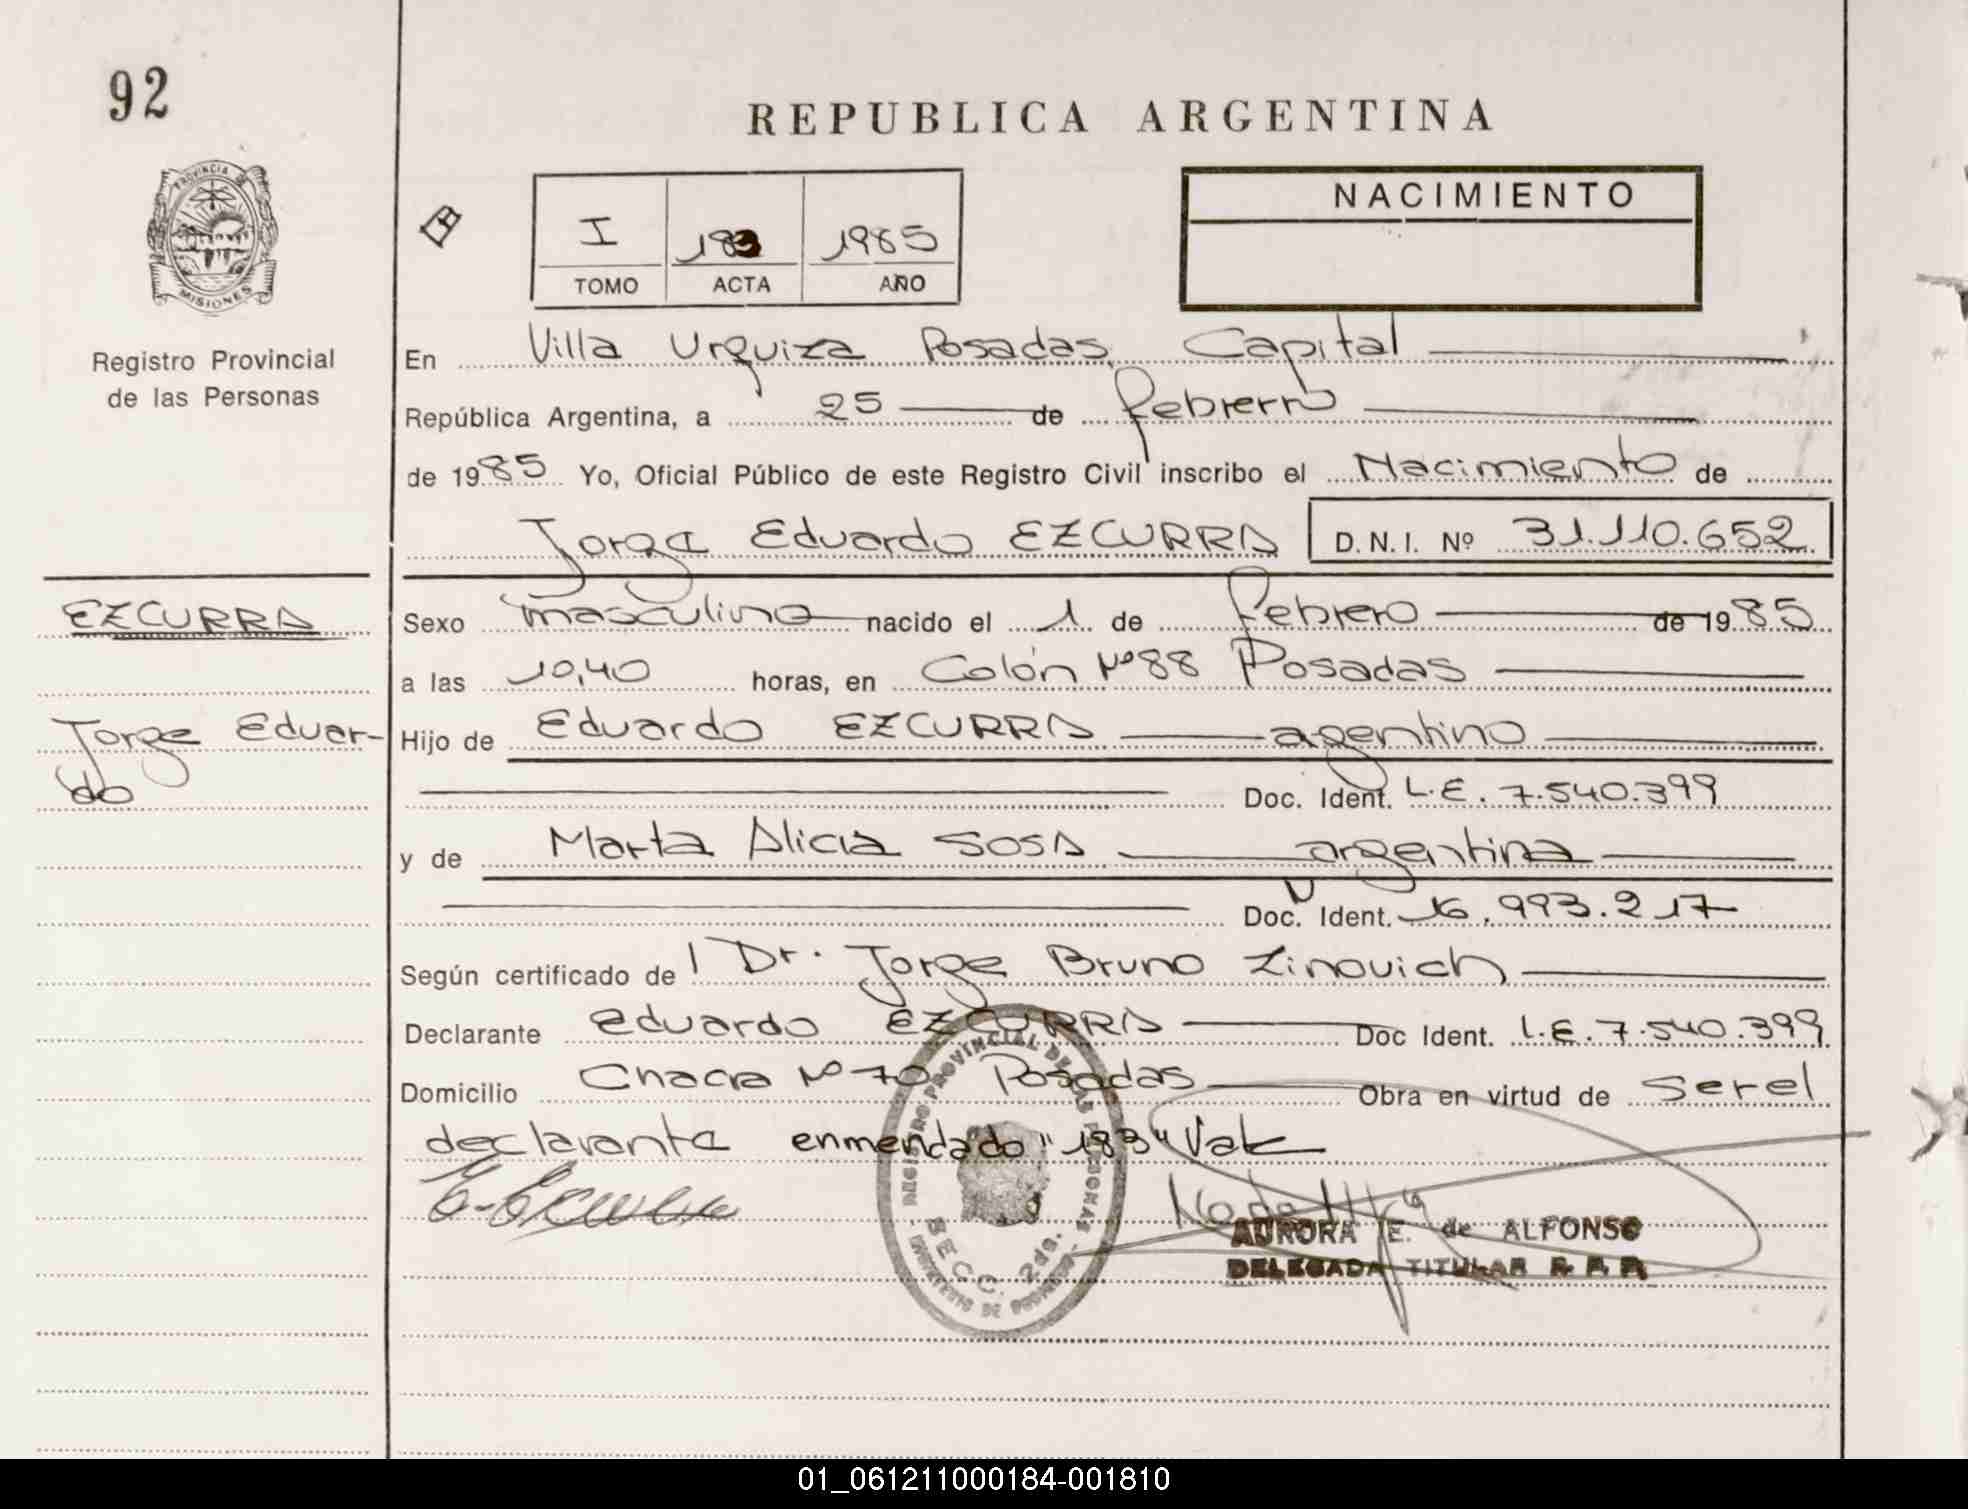 92
REPUBLICA ARGENTINA
PROVINCIA DE
MISIONES
Registro Provincial
de las Personas
I 183 1985
TOMO ACTA AÑO
NACIMIENTO
En Villa Urquiza Posadas, Capital
República Argentina, a 25 de febrero
de 1985 Yo, Oficial Público de este Registro Civil inscribo el Nacimiento de
Jorge Eduardo EZCURRA D.N.I. Nº 31.110.652
EZCURRA
Jorge Eduar-
do
Sexo masculino nacido el 1 de febrero de 1985
a las 10,40 horas, en Colón Nº 88 Posadas
Hijo de Eduardo EZCURRA agentino
Doc. Ident. L.E. 7.540.399
y de Marta Alicia SOSA argentina
Doc. Ident. 16.993.217
Según certificado de Dr. Jorge Bruno Zinovich
Declarante Eduardo EZCURRA Doc Ident. L.E. 7.540.399
Domicilio Chacra Nº 70 Posadas Obra en virtud de ser el
declarante enmendado "183" Vale
REGISTRO PROVINCIAL DE LAS PERSONAS
SECC. 2da.
AURORA E. de ALFONSO
DELEGADA TITULAR R. P. P.
01_061211000184-001810